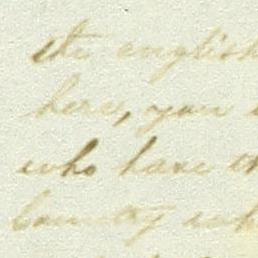 the english
here, you
who have
Country